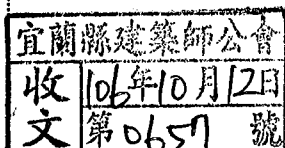 宜蘭縣建築師公會
收文
106年10月12日
第0657號